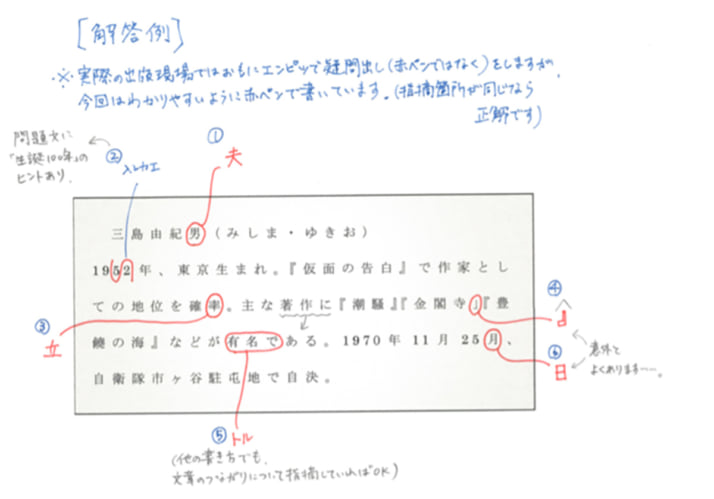 [解答例]
※実際の出版現場ではおもにエンピツで疑問出し(赤ペンではなく)をしますが、
今回はわかりやすいように赤ペンで書いています。(指摘箇所が同じなら
正解です)
問題文に
「生誕100年」の
ヒントあり。
② 入レカエ
① 夫
三島由紀男(みしま・ゆきお)
1952年、東京生まれ。『仮面の告白』で作家とし
ての地位を確率。主な著作に『潮騒』『金閣寺」『豊
饒の海』などが有名である。1970年11月25月、
自衛隊市ヶ谷駐屯地で自決。
③ 立
④ 』
⑥ 日
意外と
よくあります……。
⑤ トル
(他の書き方でも、
文章のつながりについて指摘していればOK)